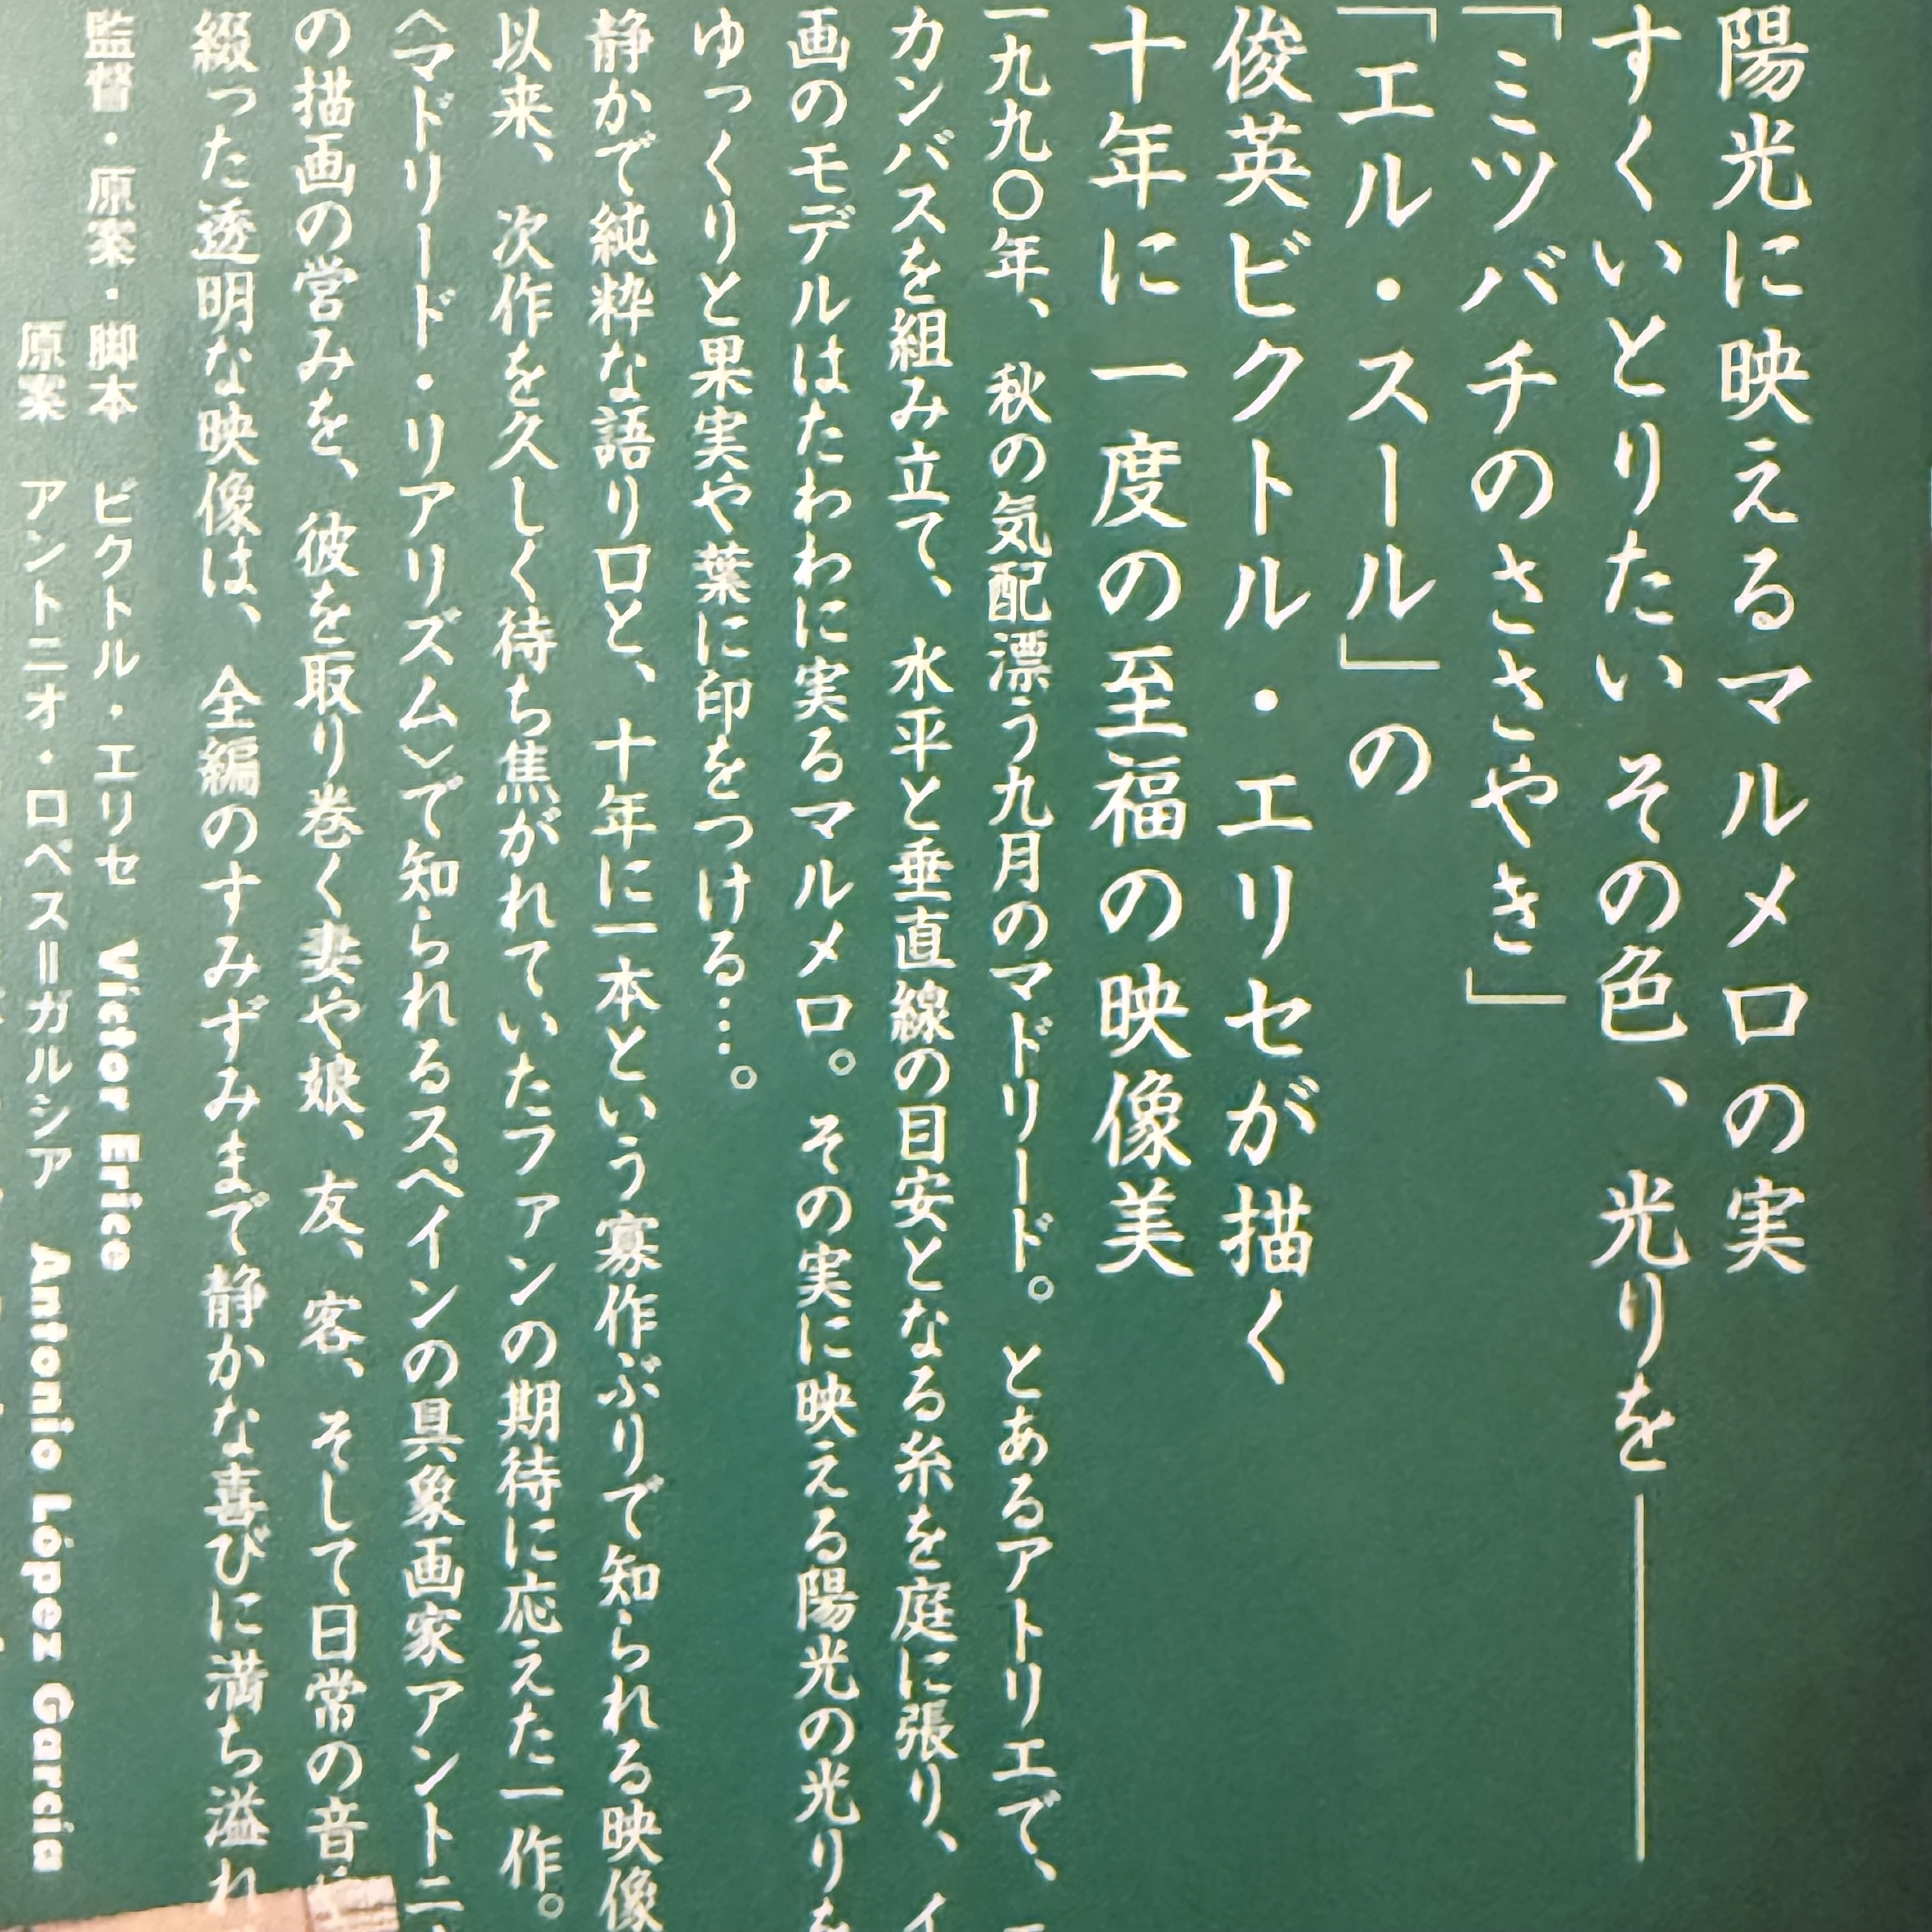 陽光に映えるマルメロの実
すくいとりたい その色、光りを――
「ミツバチのささやき」
「エル・スール」の
俊英ビクトル・エリセが描く
十年に一度の至福の映像美
一九九〇年、秋の気配漂う九月のマドリード。とあるアトリエで、
カンバスを組み立て、水平と垂直線の目安となる糸を庭に張り、イ
画のモデルはたわわに実るマルメロ。その実に映える陽光の光りを
ゆっくりと果実や葉に印をつける…。
静かで純粋な語り口と、十年に一本という寡作ぶりで知られる映像
以来、次作を久しく待ち焦がれていたファンの期待に応えた一作。
〈マドリード・リアリズム〉で知られるスペインの具象画家アントニ
の描画の営みを、彼を取り巻く妻や娘、友、客、そして日常の音
綴った透明な映像は、全編のすみずみまで静かな喜びに満ち溢れ
監督・原案・脚本 ビクトル・エリセ Victor Erice
原案 アントニオ・ロペス=ガルシア Antonio López García